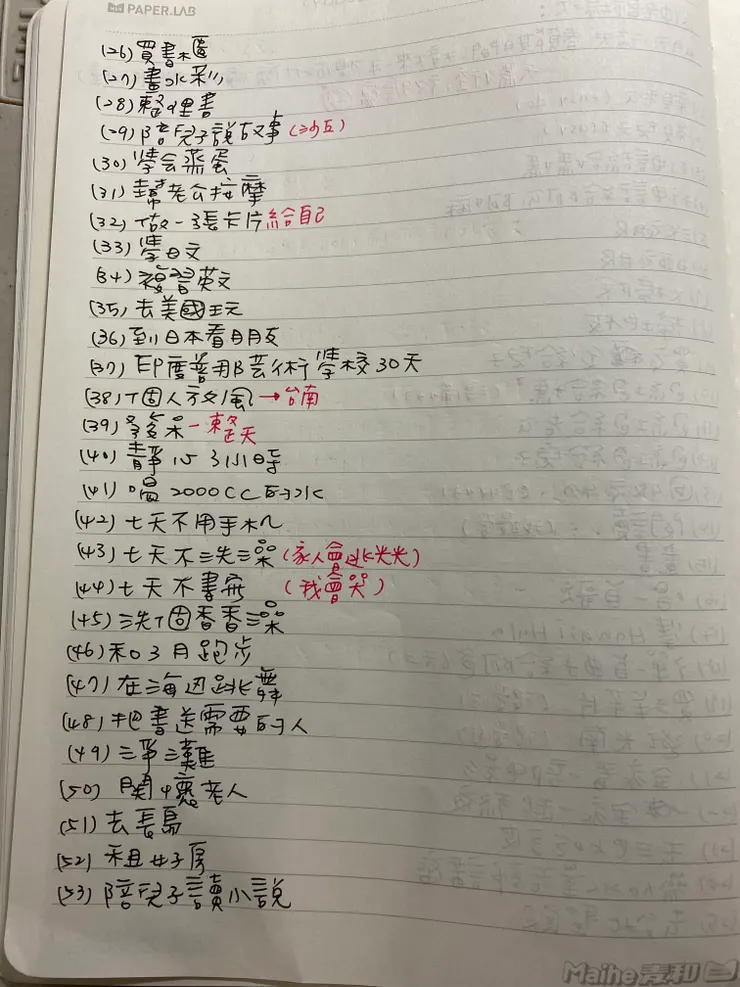 PAPER.LAB
(26) 買書櫃
(27) 畫水彩
(28) 整理書
(29) 陪兒子說故事(三少五)
(30) 學会蒸蛋
(31) 幫老公按摩
(32) 做一張卡片給自己
(33) 學日文
(34) 複習英文
(35) 去美國玩
(36) 到日本看朋友
(37) 印度普那藝術學校30天
(38) 1個人旅風→台南
(39) 發呆一整天
(40) 靜心3小時
(41) 喝2000CC的水
(42) 七天不用手机
(43) 七天不洗澡(家人會逃光光)
(44) 七天不書寫 (我會哭)
(45) 洗1個香香澡
(46) 和03月跑步
(47) 在海边跳舞
(48) 把書送需要的人
(49) 淨灘
(50) 關懷老人
(51) 去長島
(52) 租好房
(53) 陪兒子讀小說
Maihe麦和